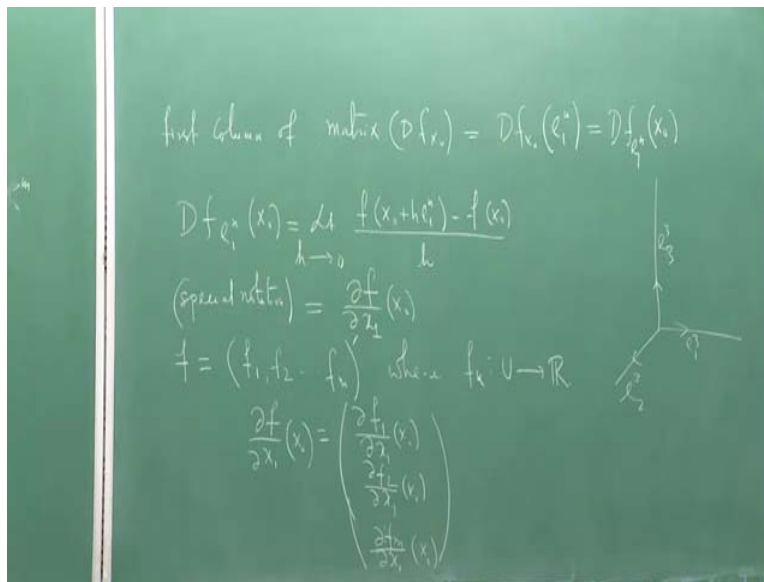 ℝᵐ
first column of matrix (Df_{x₀}) = Df_{x₀}(e₁ⁿ) = Df_{e₁ⁿ}(x₀)
Df_{e₁ⁿ}(x₀) = Lt_{h→0} (f(x₀+he₁ⁿ) - f(x₀))/h
(special notation) = ∂f/∂x₁ (x₀)
f = (f₁, f₂ - - fₘ) where fₖ: U → ℝ
∂f/∂x₁ (x₀) = (∂f₁/∂x₁ (x₀)
∂f₂/∂x₁ (x₀)
∂fₘ/∂x₁ (x₀))
e₃³
e₁³
e₂³